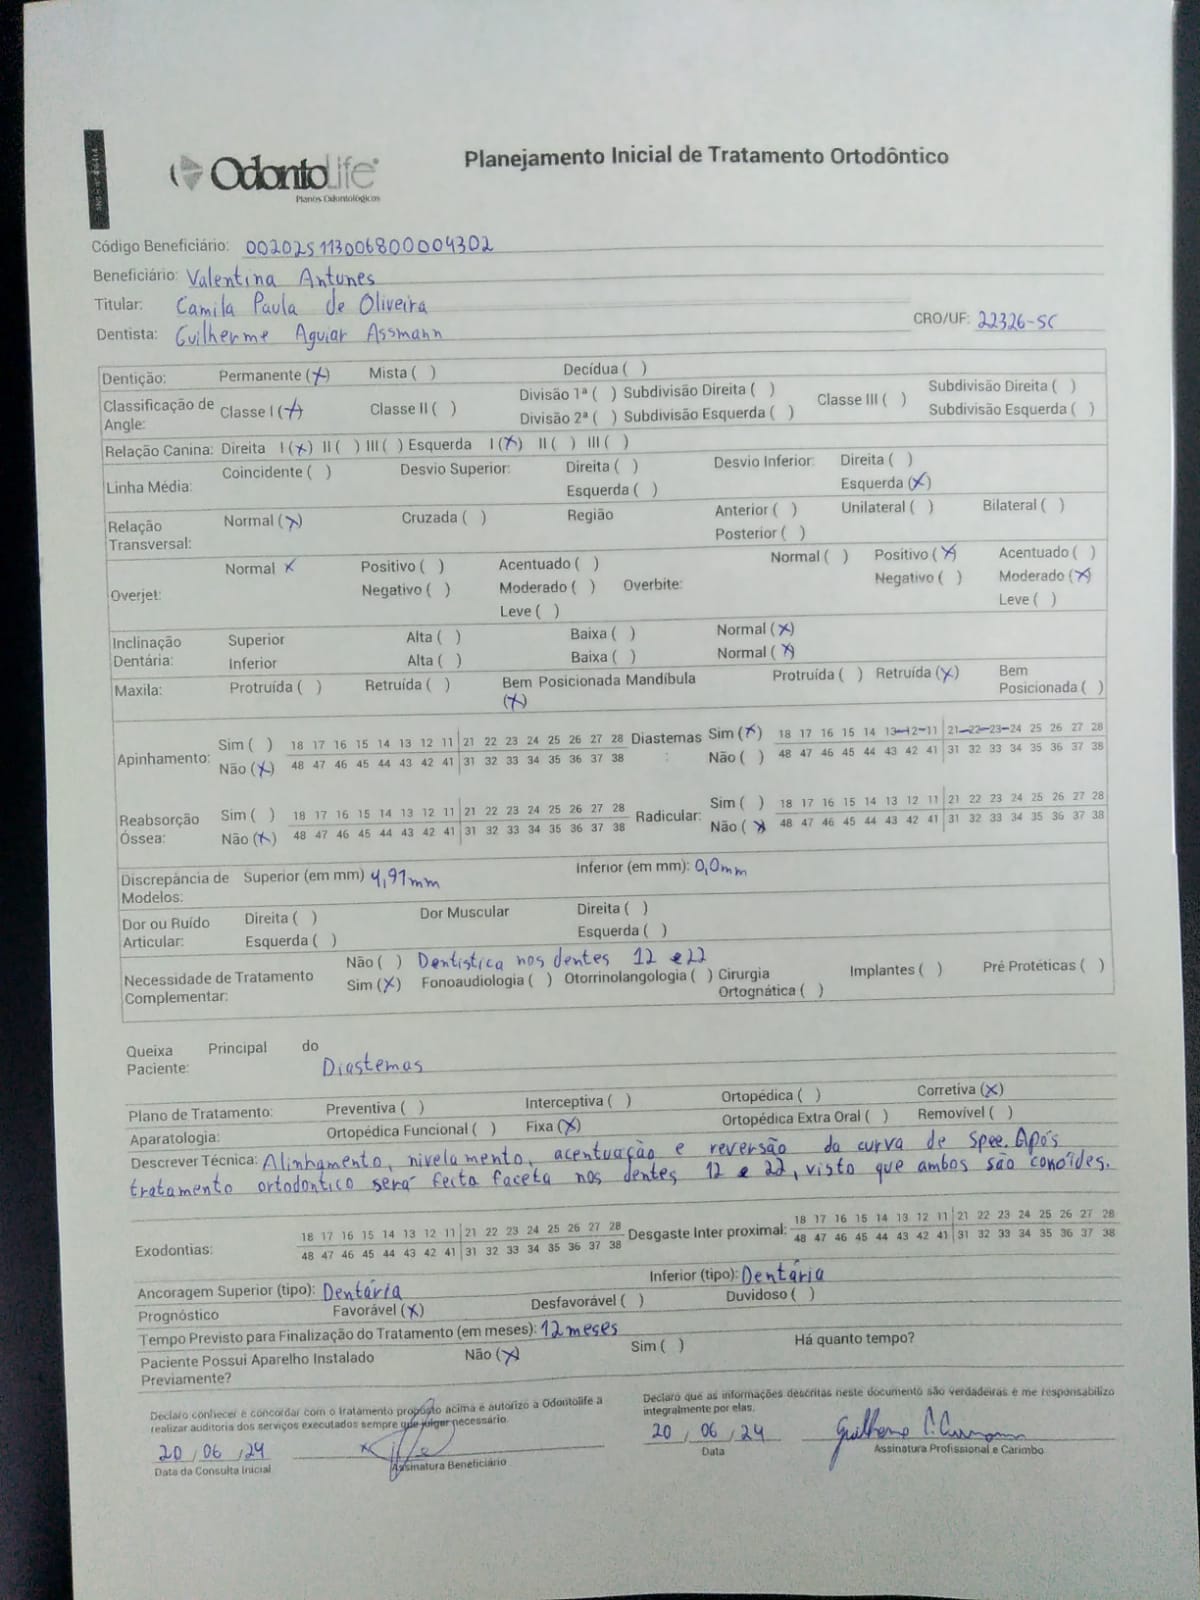 OdontoLife
Planos Odontológicos
Planejamento Inicial de Tratamento Ortodôntico
Código Beneficiário: 002025113006800004302
Beneficiário: Valentina Antunes
Titular: Camila Paula de Oliveira
Dentista: Guilherme Aguiar Assmann CRO/UF: 22326-SC
Dentição: Permanente (X) Mista ( ) Decídua ( )
Classificação de Angle: Classe I (X) Classe II ( ) Divisão 1ª ( ) Subdivisão Direita ( ) Classe III ( ) Subdivisão Direita ( )
Divisão 2ª ( ) Subdivisão Esquerda ( ) Subdivisão Esquerda ( )
Relação Canina: Direita I (X) II ( ) III ( ) Esquerda I (X) II ( ) III ( )
Linha Média: Coincidente ( ) Desvio Superior: Direita ( ) Desvio Inferior: Direita ( )
Esquerda ( ) Esquerda (X)
Relação Transversal: Normal (X) Cruzada ( ) Região Anterior ( ) Unilateral ( ) Bilateral ( )
Posterior ( )
Overjet: Normal X Positivo ( ) Acentuado ( ) Overbite: Normal ( ) Positivo (X) Acentuado ( )
Negativo ( ) Moderado ( ) Negativo ( ) Moderado (X)
Leve ( ) Leve ( )
Inclinação Dentária: Superior Alta ( ) Baixa ( ) Normal (X)
Inferior Alta ( ) Baixa ( ) Normal (X)
Maxila: Protruída ( ) Retruída ( ) Bem Posicionada Mandíbula Protruída ( ) Retruída (X) Bem Posicionada ( )
(X)
Apinhamento: Sim ( ) 18 17 16 15 14 13 12 11 21 22 23 24 25 26 27 28 Diastemas: Sim (X) 18 17 16 15 14 13-12-11 21-22-23-24 25 26 27 28
Não (X) 48 47 46 45 44 43 42 41 31 32 33 34 35 36 37 38 Não ( ) 48 47 46 45 44 43 42 41 31 32 33 34 35 36 37 38
Reabsorção Óssea: Sim ( ) 18 17 16 15 14 13 12 11 21 22 23 24 25 26 27 28 Radicular: Sim ( ) 18 17 16 15 14 13 12 11 21 22 23 24 25 26 27 28
Não (X) 48 47 46 45 44 43 42 41 31 32 33 34 35 36 37 38 Não (X) 48 47 46 45 44 43 42 41 31 32 33 34 35 36 37 38
Discrepância de Modelos: Superior (em mm) 4,91mm Inferior (em mm): 0,0mm
Dor ou Ruído Articular: Direita ( ) Dor Muscular Direita ( )
Esquerda ( ) Esquerda ( )
Necessidade de Tratamento Complementar: Não ( ) Dentistica nos dentes 12 e 22
Sim (X) Fonoaudiologia ( ) Otorrinolangologia ( ) Cirurgia Ortognática ( ) Implantes ( ) Pré Protéticas ( )
Queixa Principal do Paciente: Diastemas
Plano de Tratamento: Preventiva ( ) Interceptiva ( ) Ortopédica ( ) Corretiva (X)
Aparatologia: Ortopédica Funcional ( ) Fixa (X) Ortopédica Extra Oral ( ) Removível ( )
Descrever Técnica: Alinhamento, nivelamento, acentuação e reversão da curva de Spee. Após
tratamento ortodontico será feita faceta nos dentes 12 e 22, visto que ambos são conóides.
Exodontias: 18 17 16 15 14 13 12 11 21 22 23 24 25 26 27 28 Desgaste Inter proximal: 18 17 16 15 14 13 12 11 21 22 23 24 25 26 27 28
48 47 46 45 44 43 42 41 31 32 33 34 35 36 37 38 48 47 46 45 44 43 42 41 31 32 33 34 35 36 37 38
Ancoragem Superior (tipo): Dentária Inferior (tipo): Dentária
Prognóstico Favorável (X) Desfavorável ( ) Duvidoso ( )
Tempo Previsto para Finalização do Tratamento (em meses): 12 meses
Paciente Possui Aparelho Instalado Previamente? Não (X) Sim ( ) Há quanto tempo?
Declaro conhecer e concordar com o tratamento proposto acima e autorizo a Odontolife a
realizar auditoria dos serviços executados sempre que julgar necessário.
Declaro que as informações descritas neste documento são verdadeiras e me responsabilizo
integralmente por elas.
20 / 06 / 24
Data da Consulta Inicial
Assinatura Beneficiário
20 / 06 / 24
Data
Assinatura Profissional e Carimbo